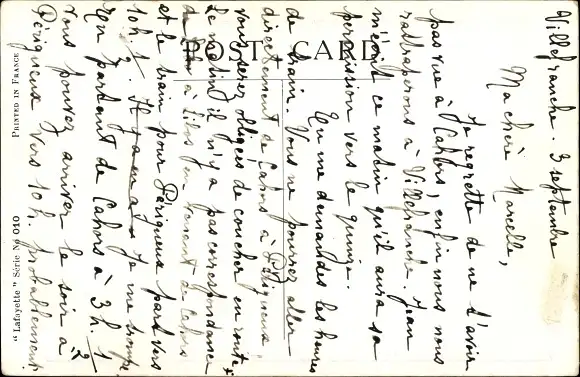 POST CARD
Villefranche. 3 septembre
Ma chère Marcelle,
Je regrette de ne t'avoir
pas vue à Cahors, enfin nous nous
rattraperons à Villefranche. Jean
m'écrit ce matin qu'il aura sa
permission vers le quinze.
Tu me demandes les heures
de train. Vous ne pourrez aller
directement de Cahors à Périgueux
vous serez obligées de coucher en route
Le matin il n'y a pas correspondance
de à Libos en venant de Cahors
et le train pour Périgueux part vers
10h ½. Il y a Je me trompe
En partant de Cahors à 3h. ½
vous pouvez arriver le soir à
Périgueux vers 10h. probablement
"Lafayette" Série No 1010
PRINTED IN FRANCE